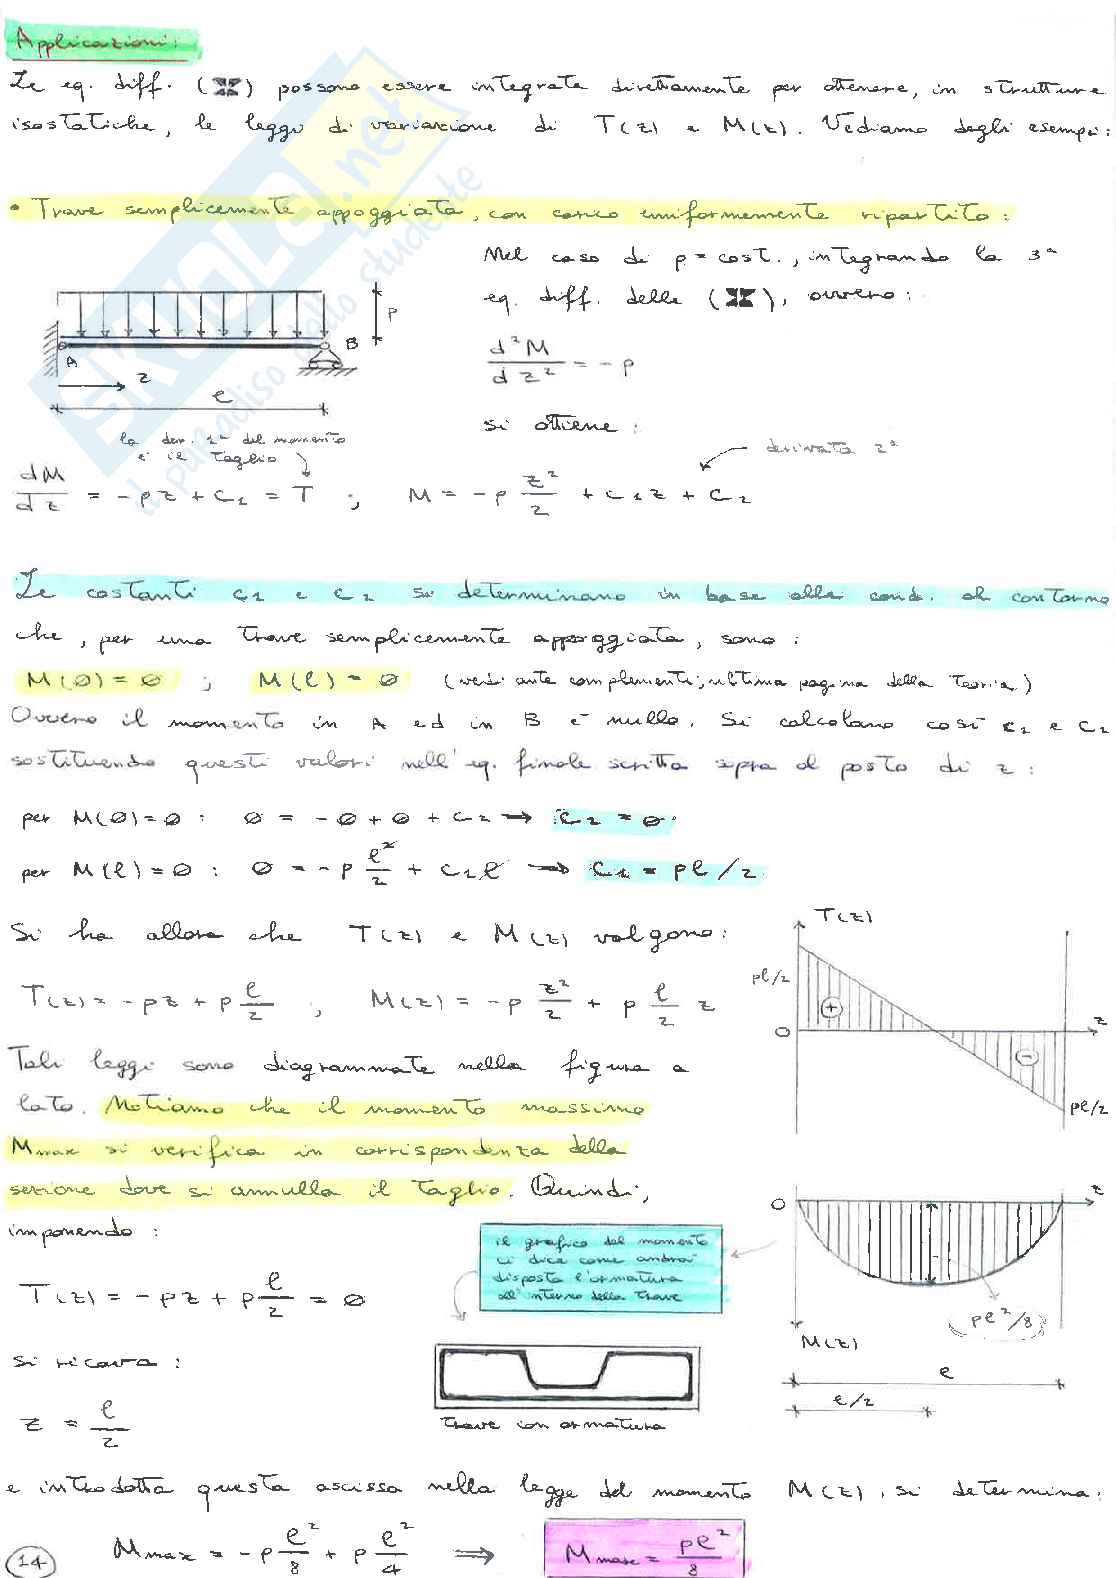 Applicazioni:
Le eq. diff. (⌘) possono essere integrate direttamente per ottenere, in strutture
isostatiche, le leggi di variazione di T(z) e M(z). Vediamo degli esempi:
• Trave semplicemente appoggiata, con carico uniformemente ripartito:
Nel caso di p = cost., integrando la 3ª
eq. diff. delle (⌘), ovvero:
d²M/dz² = - p
si ottiene:
p
A
B
z
l
la der. 1ª del momento
è il taglio
derivata 2ª
dM/dz = - p z + c₁ = T ; M = - p z²/2 + c₁z + c₂
Le costanti c₁ e c₂ si determinano in base alle cond. al contorno
che, per una trave semplicemente appoggiata, sono:
M(0) = 0 ; M(l) = 0 (vedi ante complementi, ultima pagina della teoria)
Ovvero il momento in A ed in B è nullo. Si calcolano così c₁ e c₂
sostituendo questi valori nell'eq. finale scritta sopra al posto di z:
per M(0)=0 : 0 = - 0 + 0 + c₂ → c₂ = 0.
per M(l)=0 : 0 = - p l²/2 + c₁l → c₁ = pl/2.
Si ha allora che T(z) e M(z) valgono:
T(z) = - pz + p l/2 ; M(z) = - p z²/2 + p l/2 z
Tali leggi sono diagrammate nella figura a
lato. Notiamo che il momento massimo
Mmax si verifica in corrispondenza della
sezione dove si annulla il taglio. Quindi,
imponendo:
T(z) = - pz + p l/2 = 0
si ricava:
z = l/2
T(z)
pl/2
+
0
z
-
pl/2
0
z
pl²/8
M(z)
l
l/2
il grafico del momento
ci dice come andrà
disposta l'armatura
all'interno della trave
trave con armatura
e introdotta questa ascissa nella legge del momento M(z), si determina:
Mmax = - p l²/8 + p l²/4 ⟹ Mmax = pl²/8
14
SKUOLA.net
il paradiso dello studente